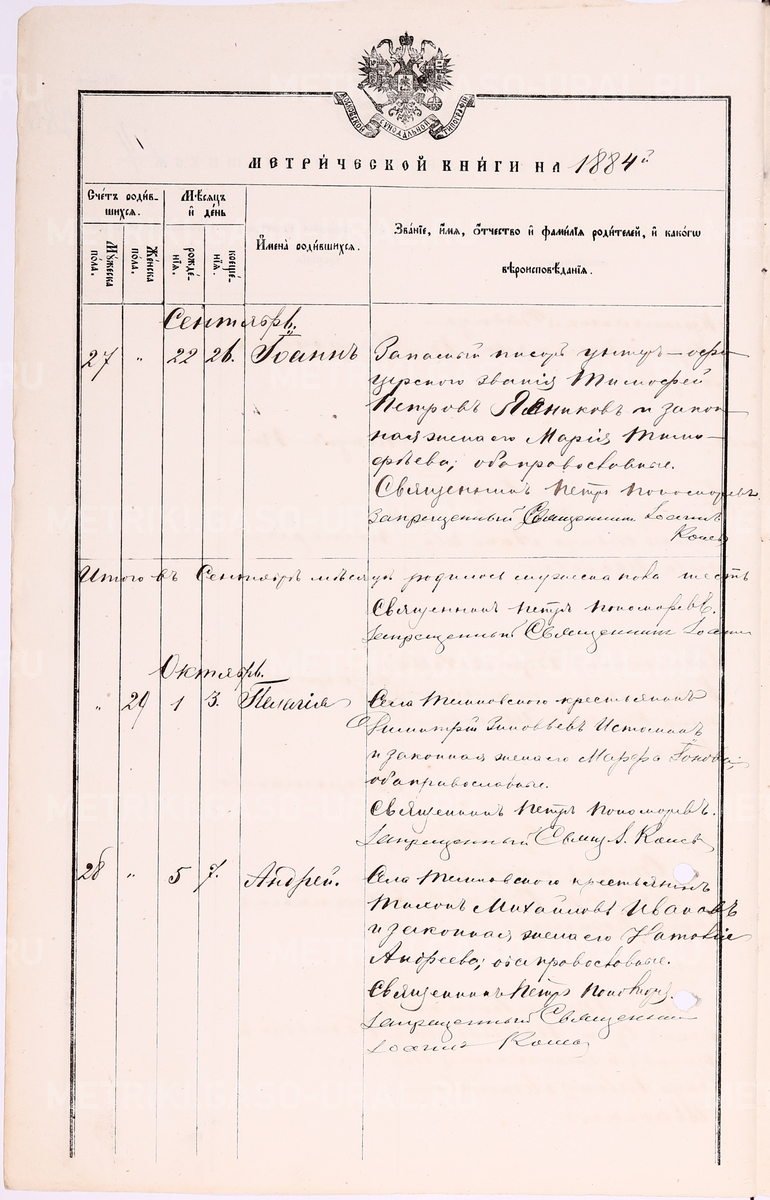 МОСКОВСКОЙ СѴНОДАЛЬНОЙ ТИПОГРАФІИ
МЕТРИ́ЧЕСКОЙ КНИ́ГИ НА 1884й
Сче́тъ роди́в-
шихся.
Мѣ́сяцъ
и де́нь
Му́жеска
по́ла.
Же́нска
по́ла.
рожде́-
нїѧ.
креще́-
нїѧ.
И҆мена̀ роди́вшихся.
Зва́нїе, и҆́мя, ѻ҆́тчество и҆ фами́лїя роди́телей, и҆ како́гѡ
вѣроисповѣ́данїя.
Сентябрь.
27 " 22 26. Іоаннъ Запасный писарь унтеръ-офи-
церского званія Тимофей
Петровъ и закон-
ная жена его Марія Тимо-
фѣева; оба православные.
Священникъ Петръ Пономаревъ.
Запрещенный Священникъ Іоаннъ
Итого въ Сентябрѣ мѣсяцѣ родилось мужеска пола шесть
Священникъ Петръ Пономаревъ.
Запрещенный Священникъ Іоаннъ
Октябрь.
" 29 1 3. Пелагія Села крестьянинъ
Димитрій Зиновьевъ Истоминъ
и законная жена его Марфа
оба православные.
Священникъ Петръ Пономаревъ.
Запрещенный Свящ. І.
28 " 5 7. Андрей. Села крестьянинъ
Тихонъ Михайловъ Ивановъ
и законная жена его Наталія
Андреева; оба православные.
Священникъ Петръ Пономаревъ.
Запрещенный Священникъ
Іоаннъ